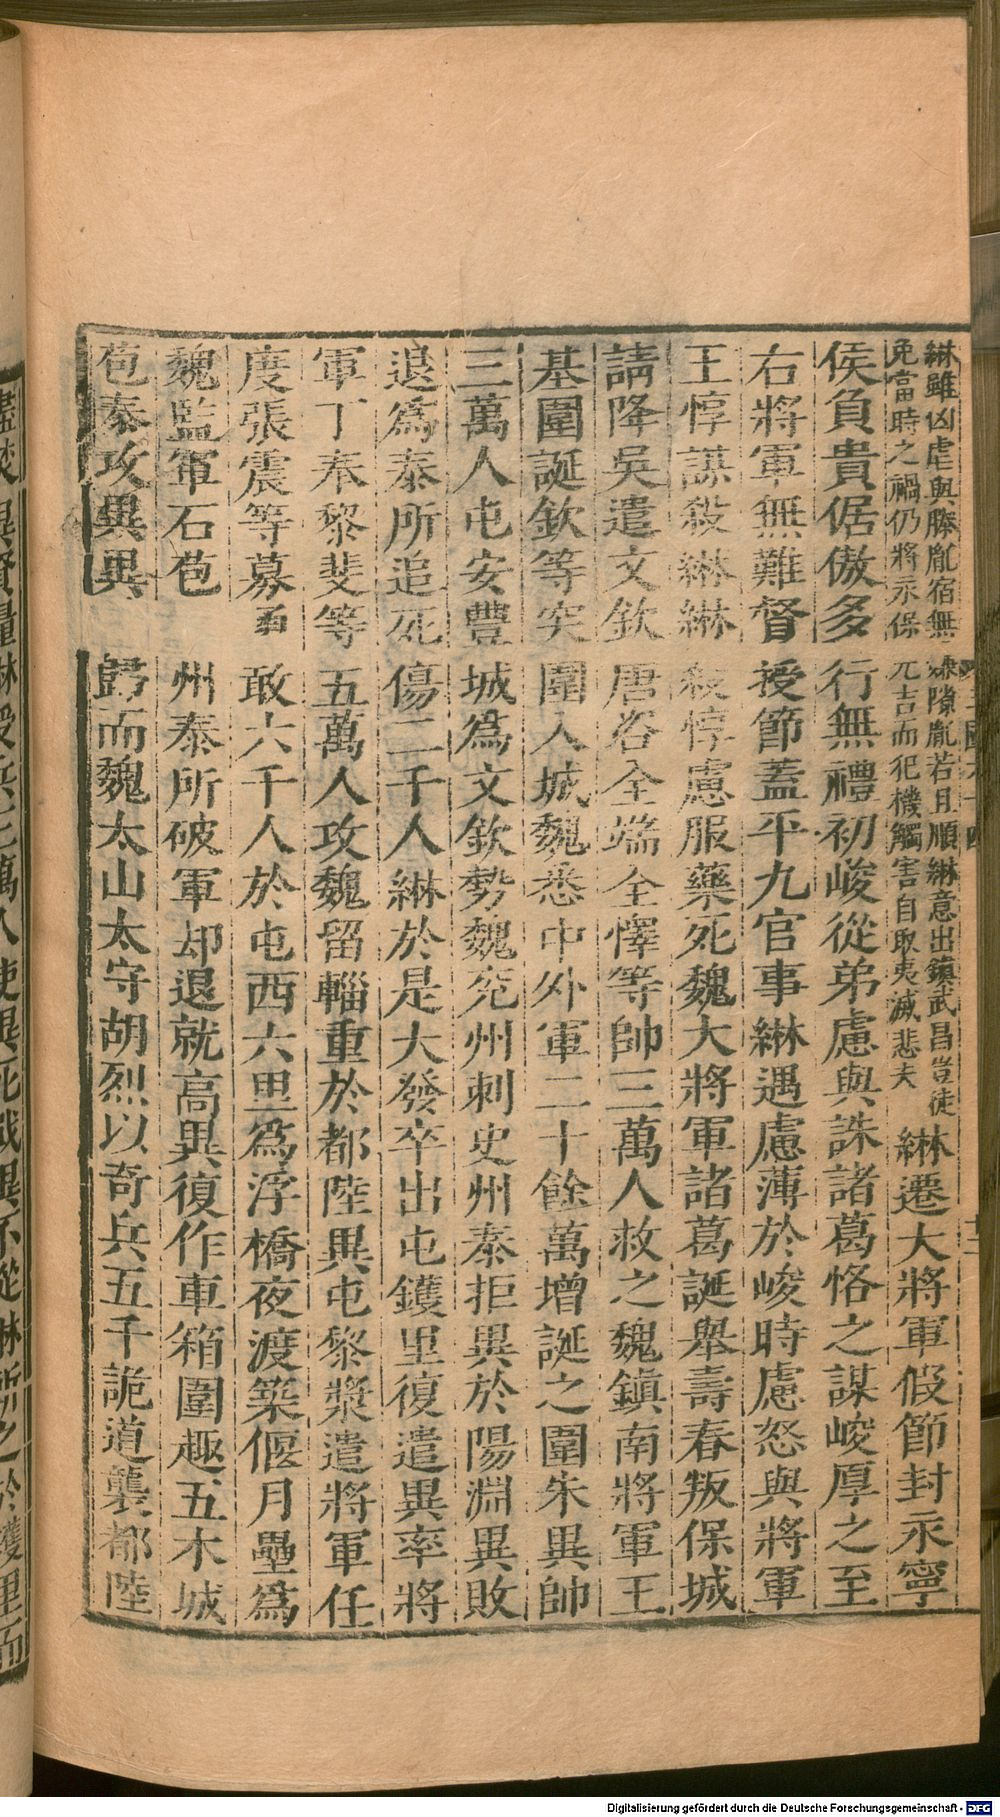 綝雖凶虐與滕胤宿無嫌隙胤若且順綝意出鎮武昌豈徒
免當時之禍仍將永保元吉而犯機觸害自取夷滅悲夫
綝遷大將軍假節封永寧
侯負貴倨傲多行無禮初峻從弟慮與誅諸葛恪之謀峻厚之至
右將軍無難督授節蓋平九官事綝遇慮薄於峻時慮怒與將軍
王惇謀殺綝綝殺惇慮服藥死魏大將軍諸葛誕舉壽春叛保城
請降吳遣文欽唐咨全端全懌等帥三萬人救之魏鎮南將軍王
基圍誕欽等突圍入城魏悉中外軍二十餘萬增誕之圍朱異帥
三萬人屯安豐城爲文欽勢魏兖州刺史州泰拒異於陽淵異敗
退爲泰所追死傷二千人綝於是大發卒出屯鑊里復遣異率將
軍丁奉黎斐等五萬人攻魏留輜重於都陸異屯黎漿遣將軍任
度張震等募勇敢六千人於屯西六里爲浮橋夜渡築偃月壘爲
魏監軍石苞州泰所破軍却退就高異復作車箱圍趣五木城
苞泰攻異異歸而魏太山太守胡烈以奇兵五千詭道襲都陸
盡焚異資糧綝授兵三萬人使異死戰異不從綝斬之於鑊里而
Digitalisierung gefördert durch die Deutsche Forschungsgemeinschaft - DFG